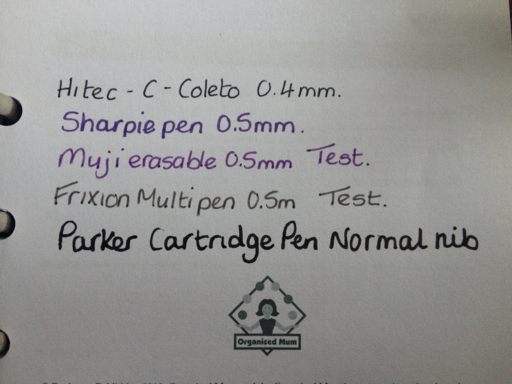 Hitec - C - Coleto 0.4mm.
Sharpie pen 0.5mm.
Muji erasable 0.5mm Test.
Frixion Multi pen 0.5m Test.
Parker Cartridge Pen Normal nib
Organised Mum